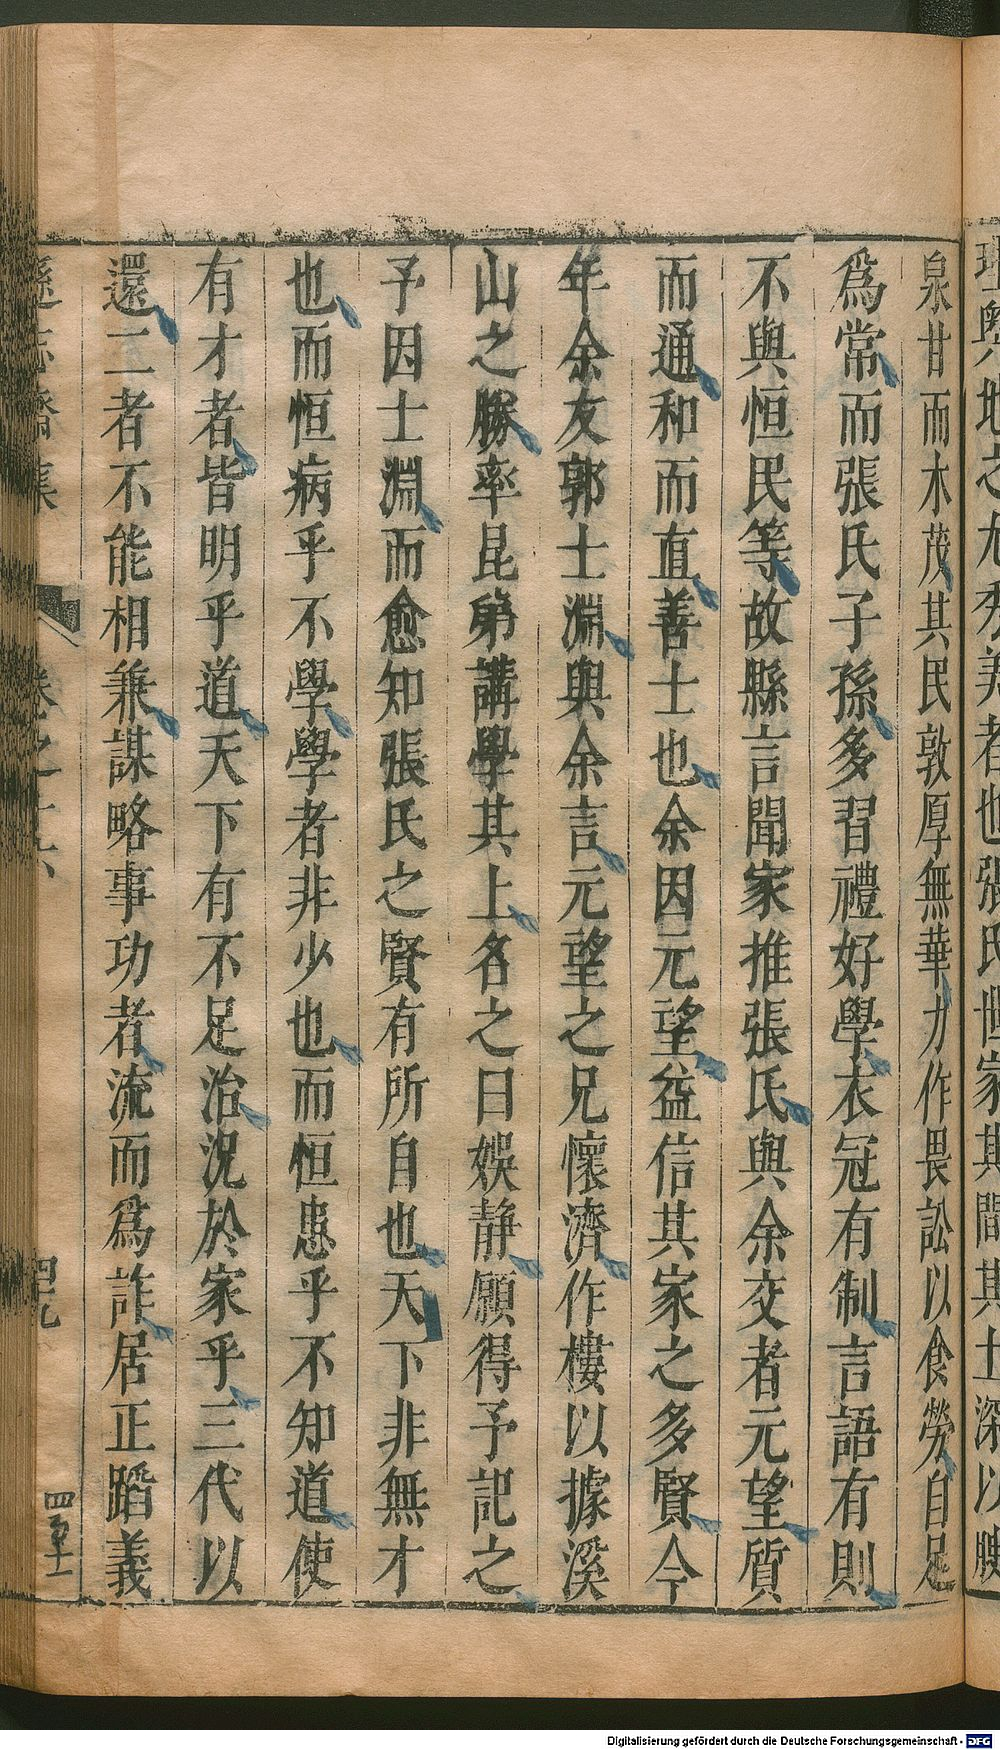 瑾奧地之尤秀美者也張氏世家其間其土深以腴
泉甘而木茂其民敦厚無華力作畏訟以食勞自足
爲常而張氏子孫多習禮好學衣冠有制言語有則
不與恒民等故縣言聞家推張氏與余交者元望質
而通和而直善士也余因元望益信其家之多賢今
年余友郭士淵與余言元望之兄懷濟作樓以據溪
山之勝率昆弟講學其上名之曰娛静願得予記之
予因士淵而愈知張氏之賢有所自也天下非無才
也而恒病乎不學學者非少也而恒患乎不知道使
有才者皆明乎道天下有不足治況於家乎三代以
還二者不能相兼謀略事功者流而爲詐居正蹈義
遜志齋集 卷之十六 四九 四百十一
Digitalisierung gefördert durch die Deutsche Forschungsgemeinschaft - DFG